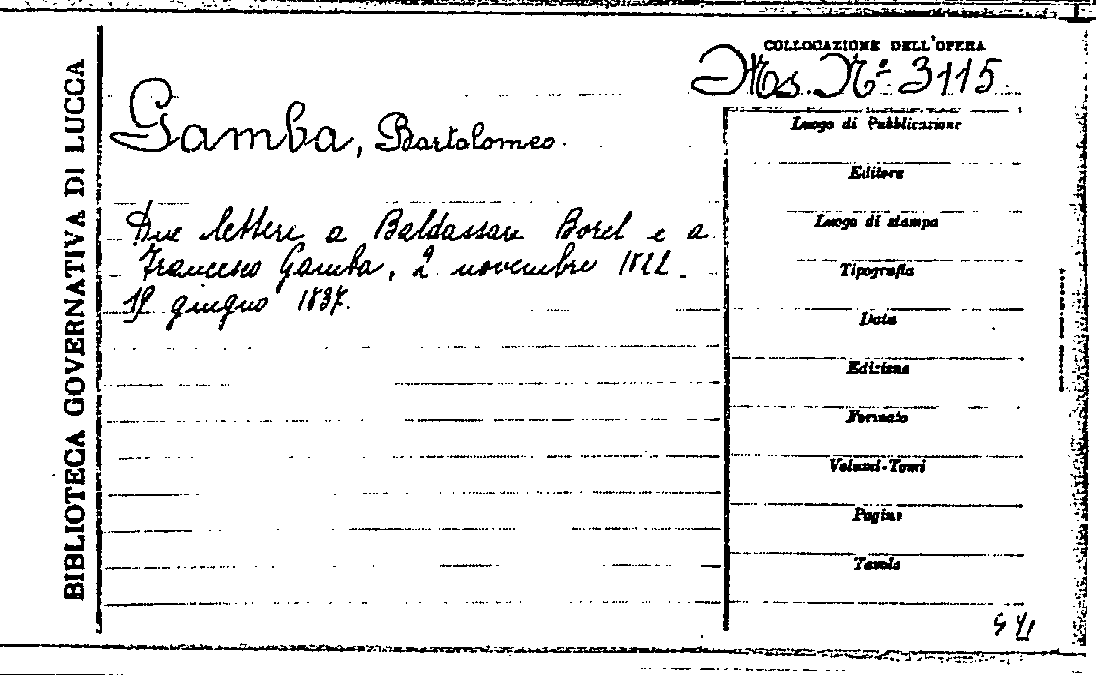 BIBLIOTECA GOVERNATIVA DI LUCCA
COLLOCAZIONE DELL'OPERA
Ms. N° 3115
Gamba, Bartolomeo.
Due lettere a Baldassare Borel e a
Francesco Gamba, 2 novembre 1822 -
19 giugno 1837.
Luogo di Pubblicazione
Editore
Luogo di stampa
Tipografia
Data
Edizione
Formato
Volumi-Tomi
Pagine
Tavole